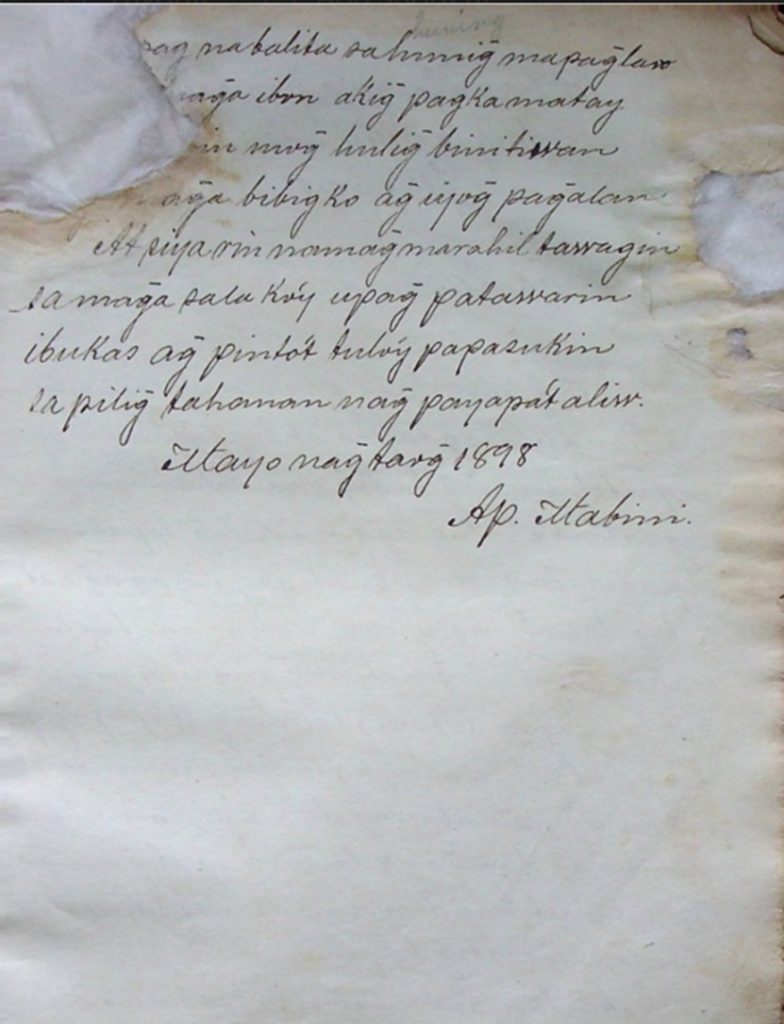 huning
pag nabalita sa hunig̃ mapag̃law
mag̃a ibon akig̃ pagkamatay
in mog̃ hulig̃ binitiwan
ag̃a bibig ko ag̃ iyog̃ pag̃alan
At siya rin namag̃ marahil tawagin
sa mag̃a sala ko'y upag̃ patawarin
ibukas ag̃ pinto't tulo'y papasukin
sa pilig̃ tahanan nag̃ payapa't aliw.
Mayo nag̃ taog̃ 1898
Ap. Mabini.